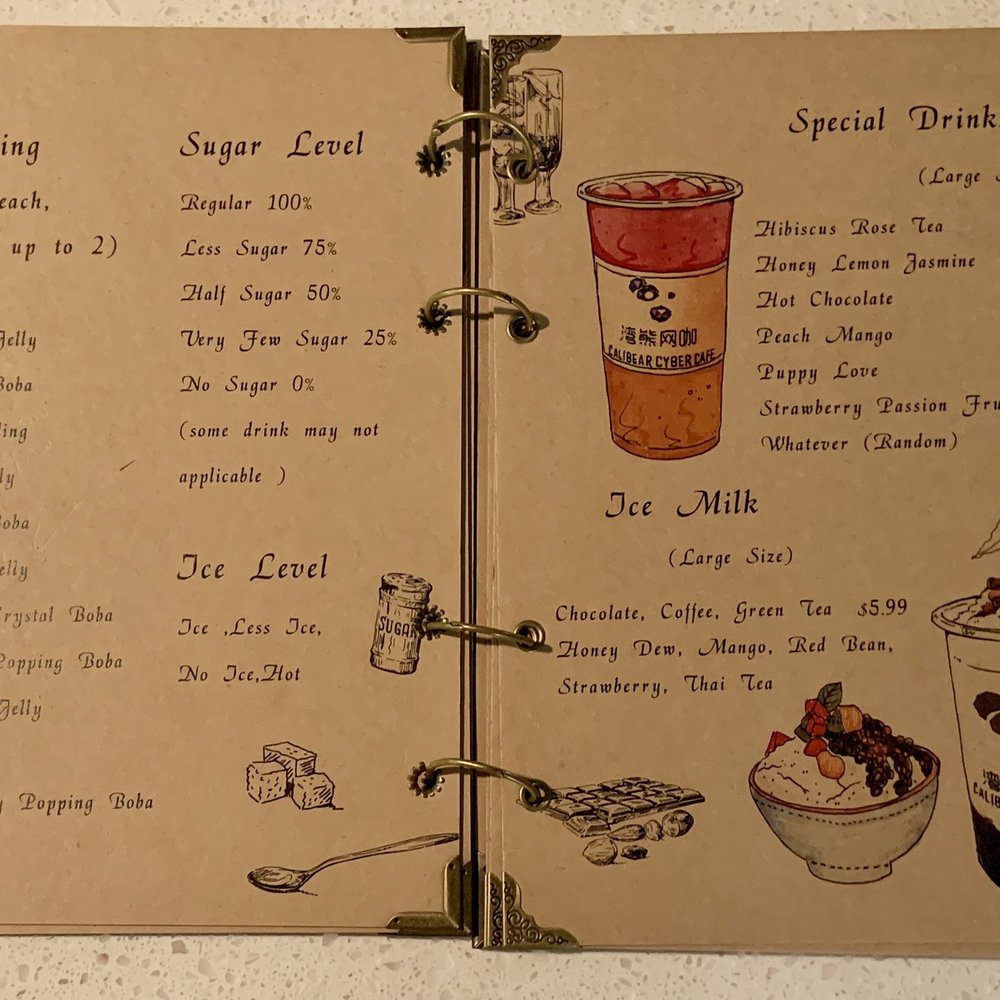 ing
each,
up to 2)
Jelly
Boba
ing
ly
Boba
elly
Crystal Boba
Popping Boba
Jelly
y Popping Boba
Sugar Level
Regular 100%
Less Sugar 75%
Half Sugar 50%
Very Few Sugar 25%
No Sugar 0%
(some drink may not
applicable )
Ice Level
Ice ,Less Ice,
No Ice,Hot
SUGAR
Special Drink
(Large
Hibiscus Rose Tea
Honey Lemon Jasmine
Hot Chocolate
Peach Mango
Puppy Love
Strawberry Passion Fru
Whatever (Random)
湾熊网咖
CALIBEAR CYBER CAFE
Ice Milk
(Large Size)
Chocolate, Coffee, Green Tea $5.99
Honey Dew, Mango, Red Bean,
Strawberry, Thai Tea
湾
CALIB